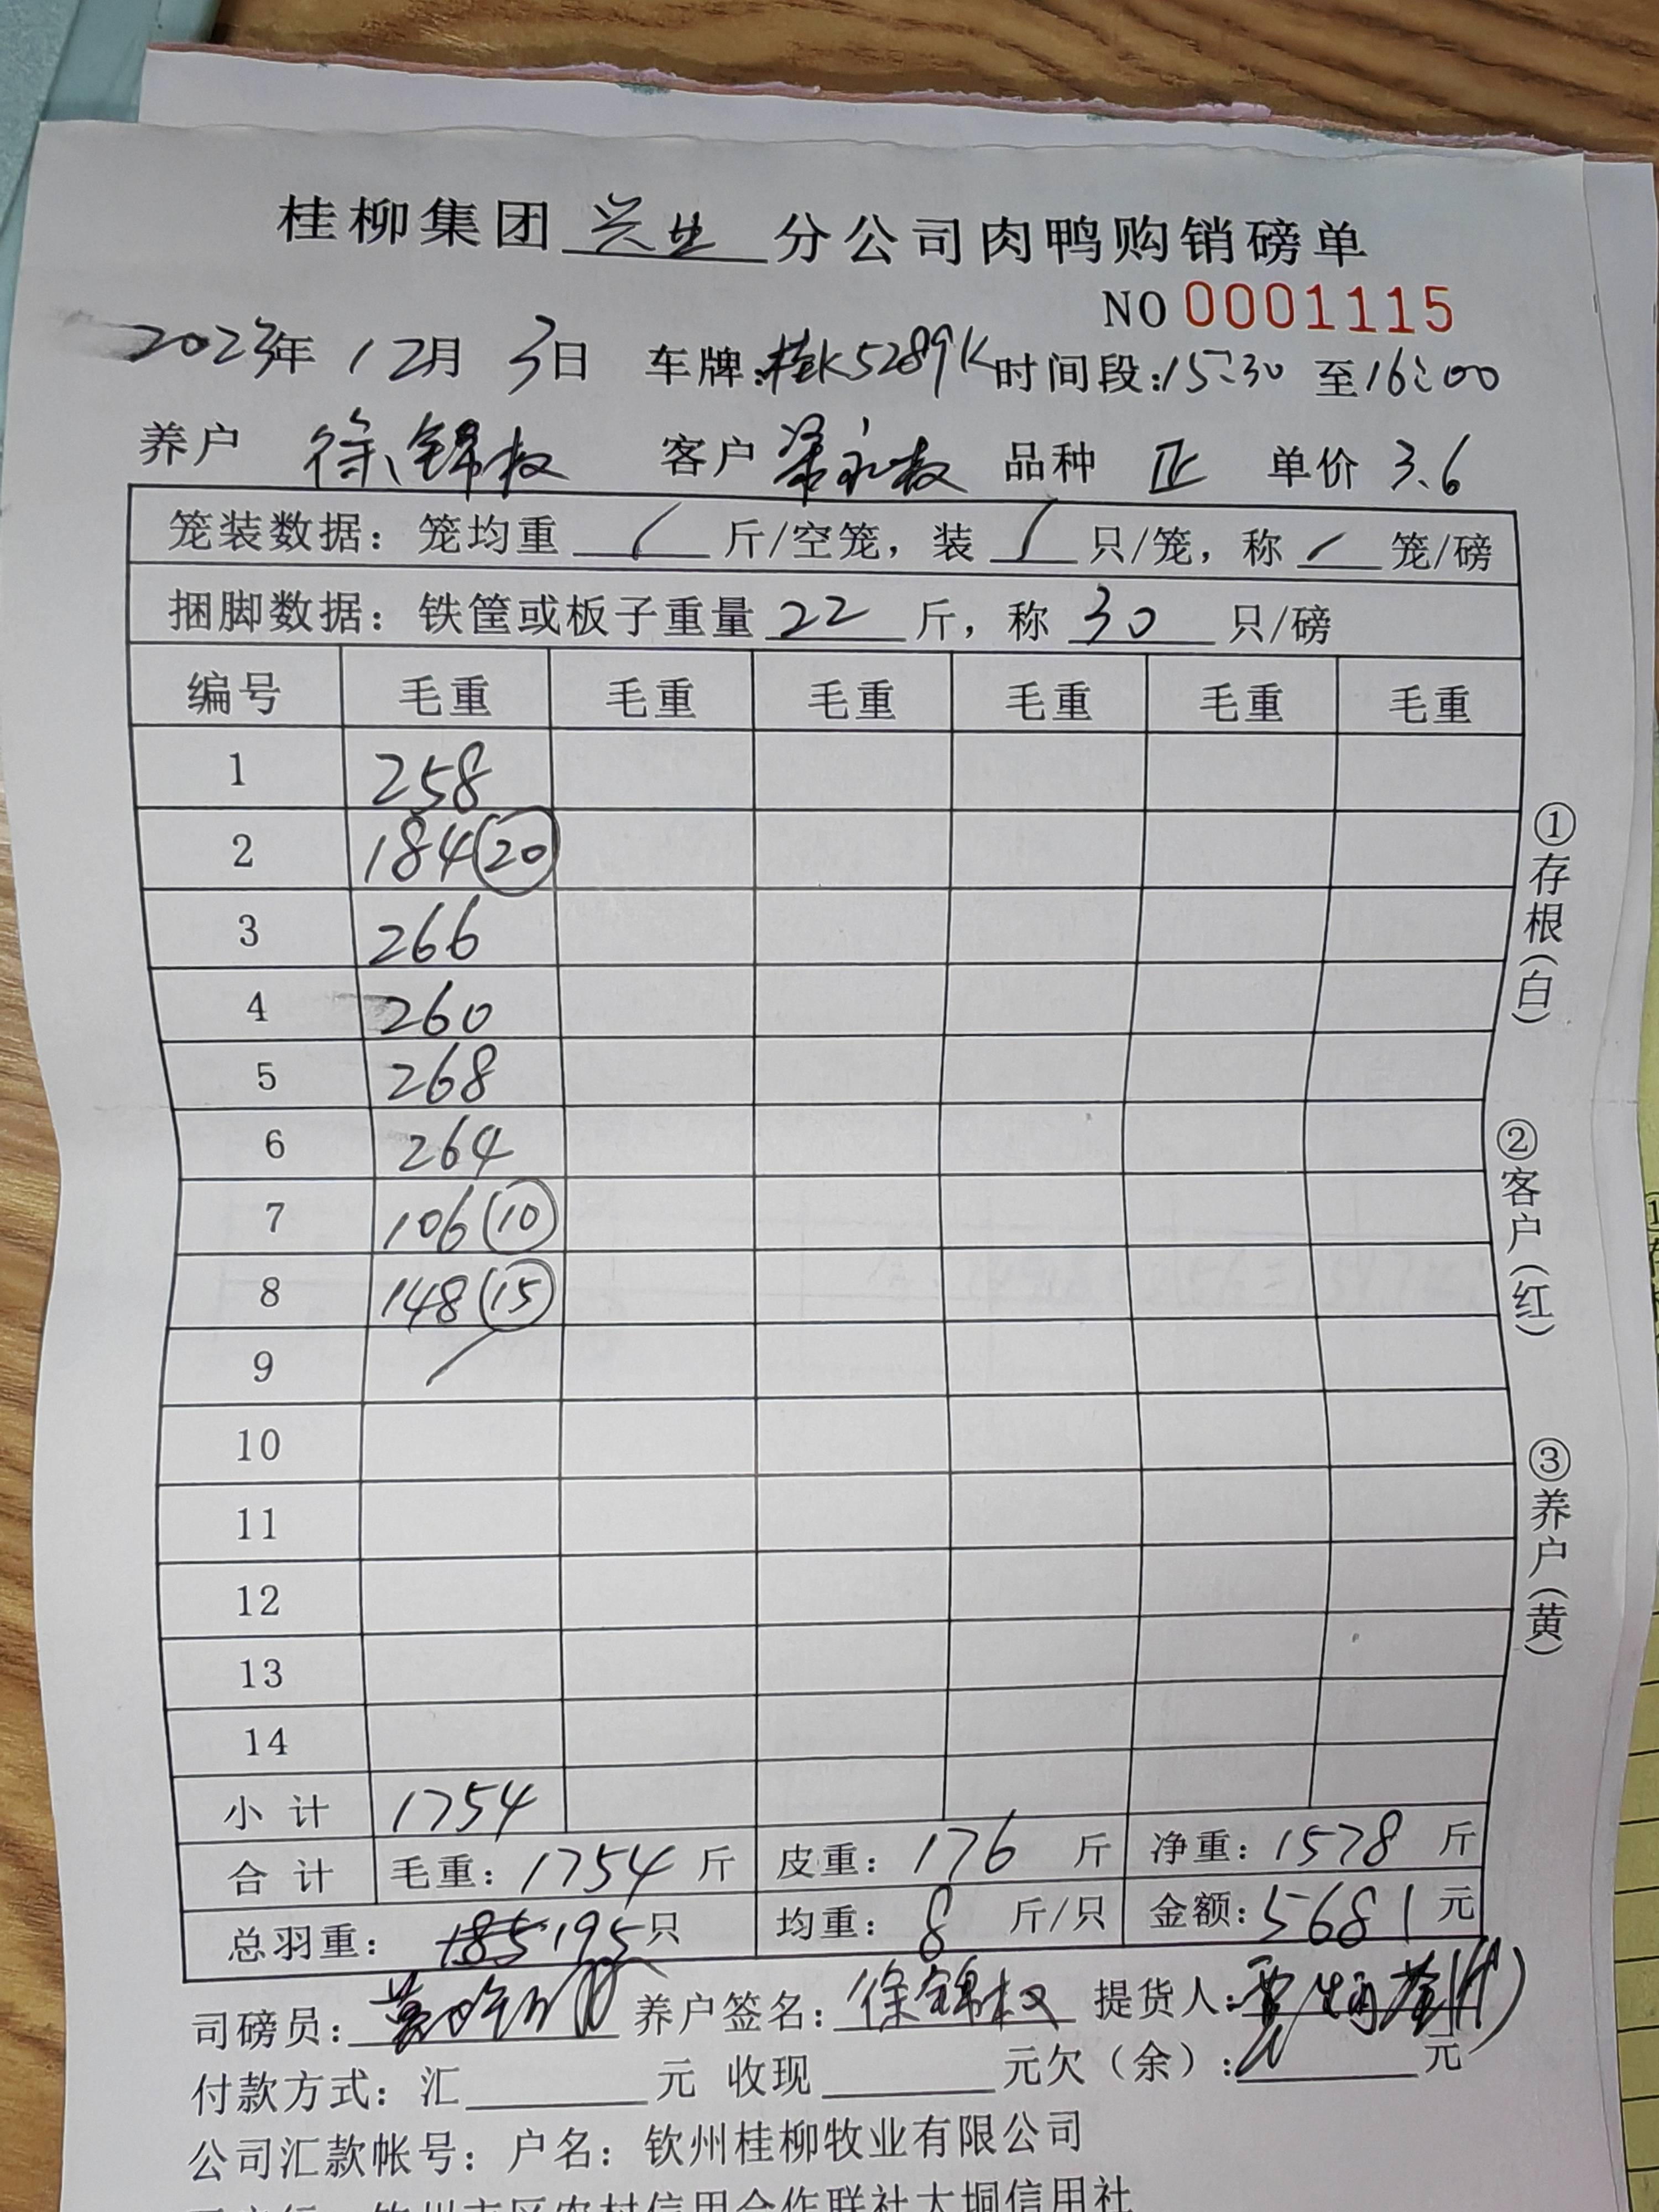 桂柳集团 兴业 分公司肉鸭购销磅单
NO 0001115
2023年 12月 3日 车牌:桂K5289K 时间段:15:30 至16:00
养户 徐锦权 客户 梁永权 品种 正 单价 3.6
笼装数据：笼均重 / 斤/空笼，装 / 只/笼，称 / 笼/磅
捆脚数据：铁筐或板子重量 22 斤，称 30 只/磅
编号 毛重 毛重 毛重 毛重 毛重 毛重
1 258
2 184 (20)
3 266
4 260
5 268
6 264
7 106 (10)
8 148 (15)
9 /
10
11
12
13
14
小计 1754
合计 毛重：1754 斤 皮重：176 斤 净重：1578 斤
总羽重：185 195只 均重：8 斤/只 金额：5681元
司磅员： 养户签名：徐锦权 提货人：
付款方式：汇 元 收现 元欠（余）： 元
公司汇款帐号：户名：钦州桂柳牧业有限公司
钦州市区农村信用合作联社大垌信用社
①存根（白）
②客户（红）
③养户（黄）